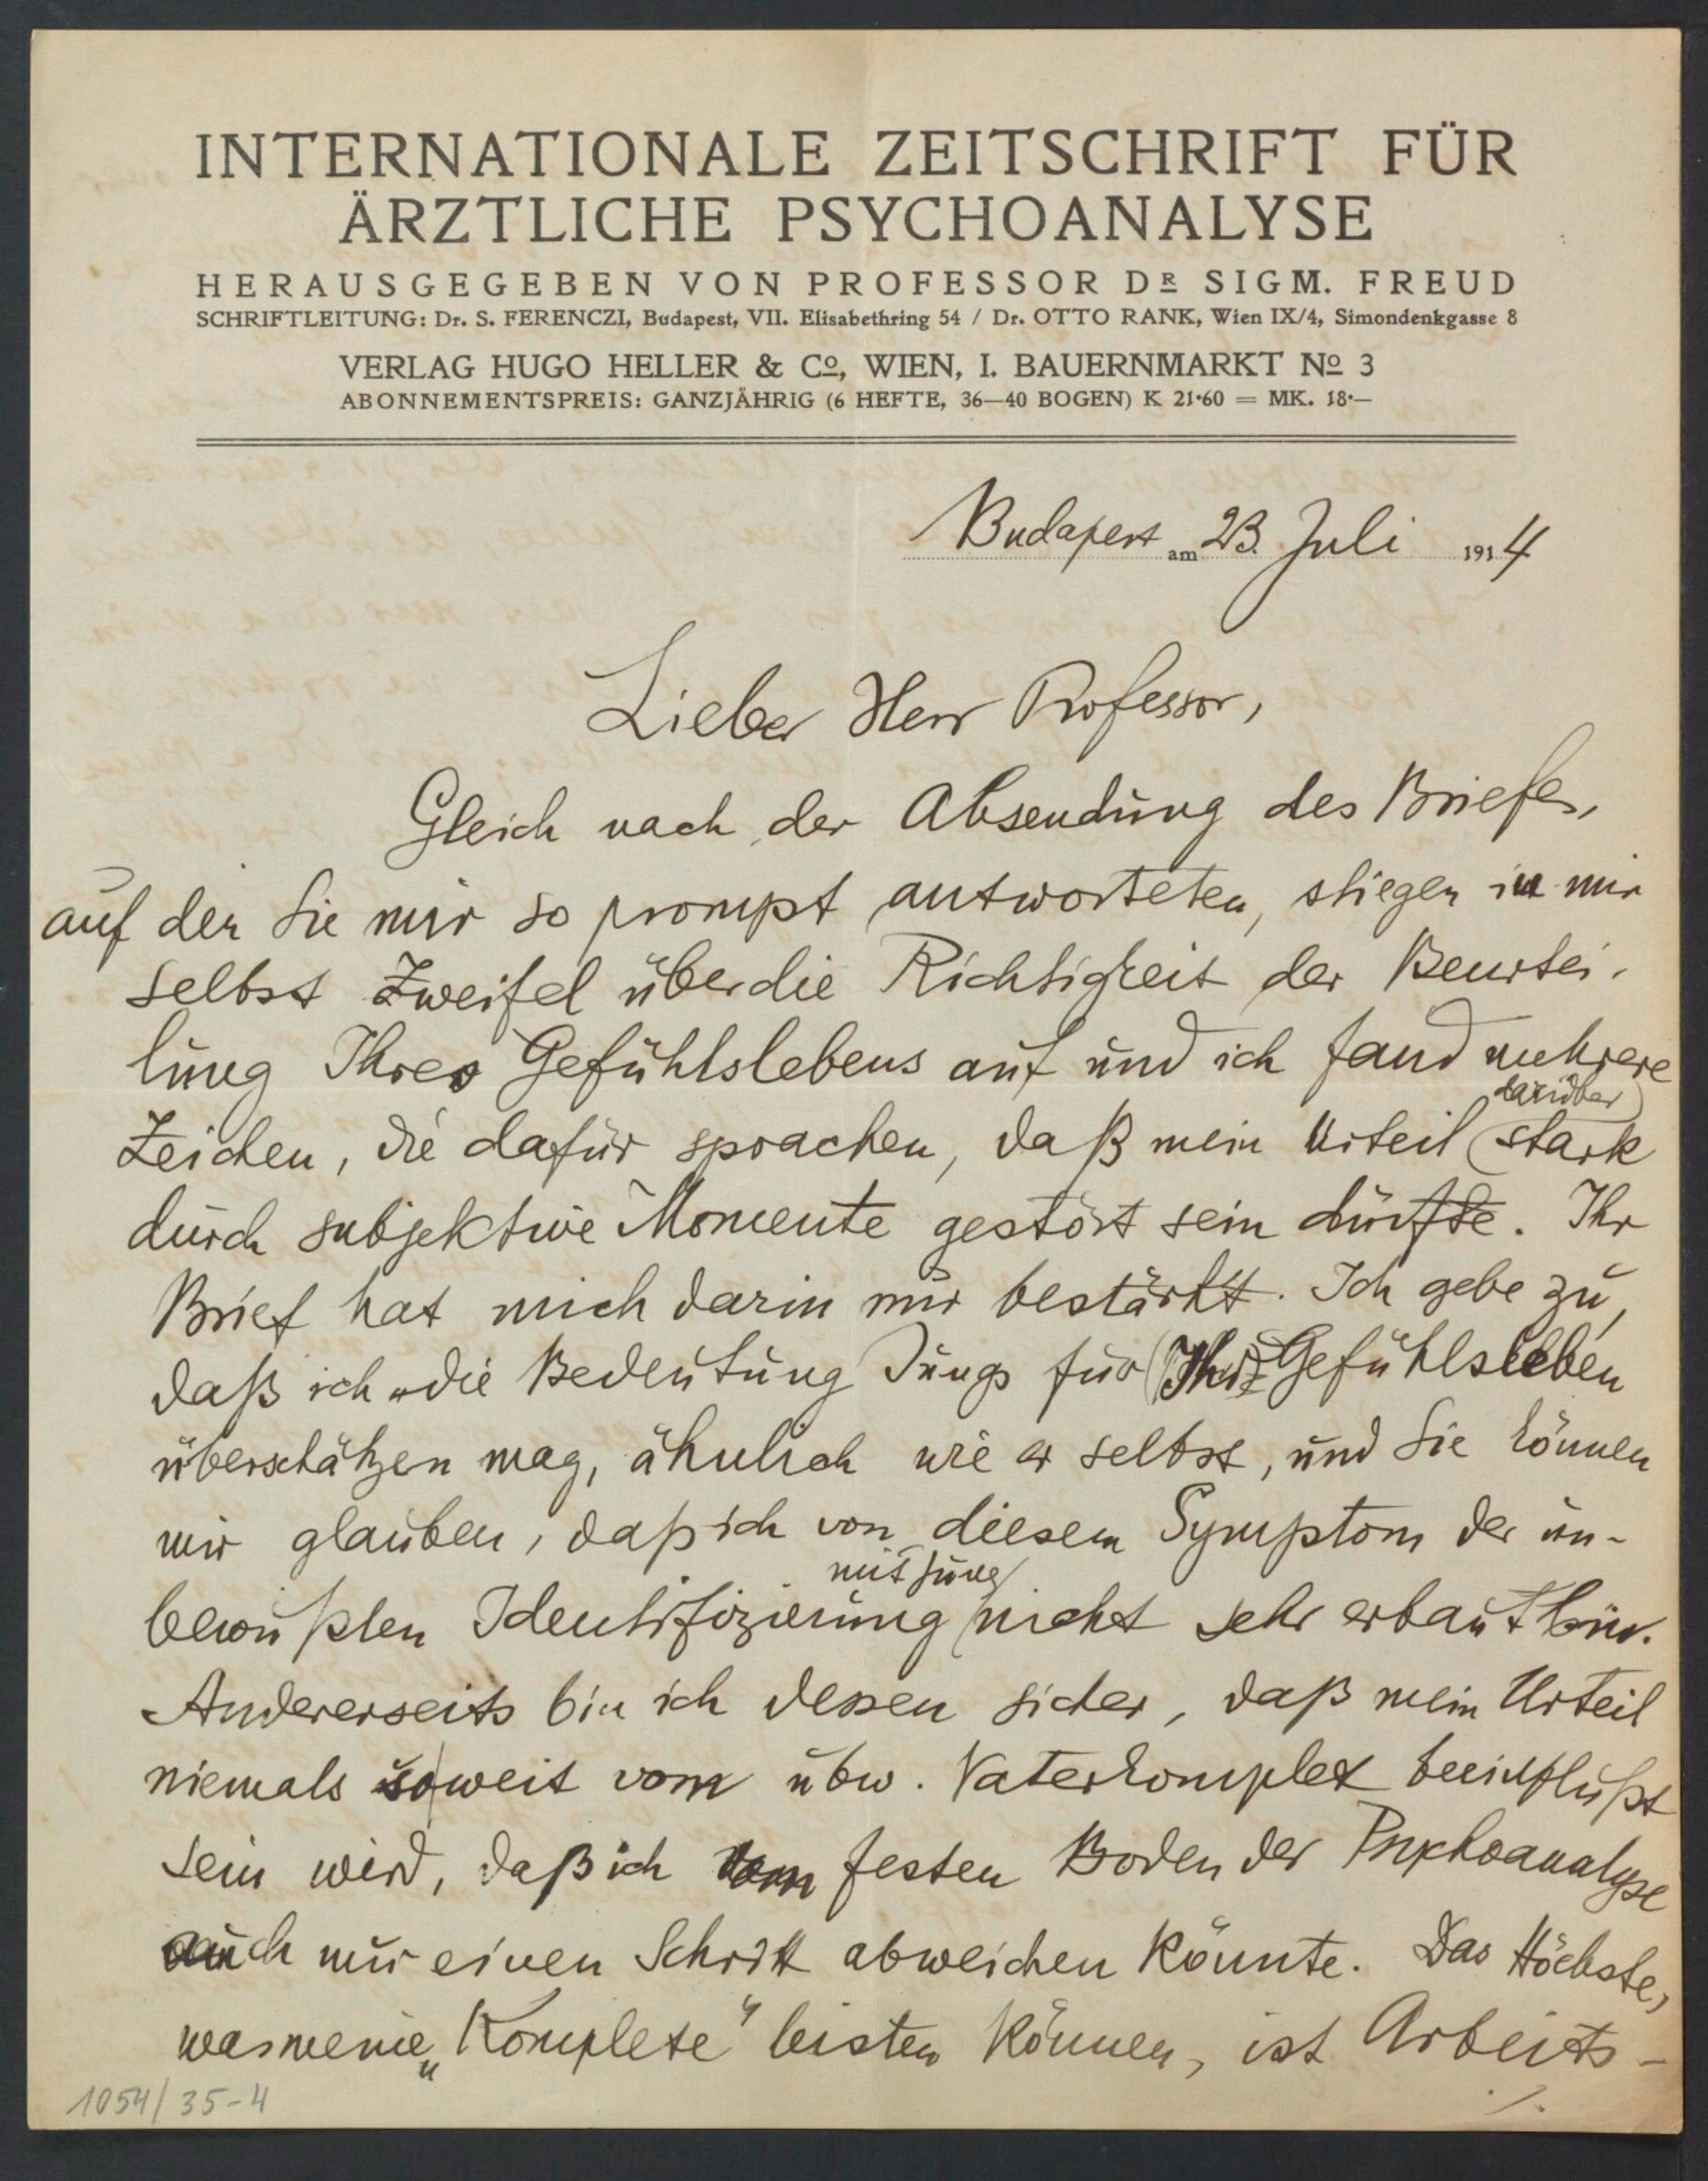 INTERNATIONALE ZEITSCHRIFT FÜR
ÄRZTLICHE PSYCHOANALYSE
HERAUSGEGEBEN VON PROFESSOR DR SIGM. FREUD
SCHRIFTLEITUNG: Dr. S. FERENCZI, Budapest, VII. Elisabethring 54 / Dr. OTTO RANK, Wien IX/4, Simondenkgasse 8
VERLAG HUGO HELLER & Co, WIEN, I. BAUERNMARKT No 3
ABONNEMENTSPREIS: GANZJÄHRIG (6 HEFTE, 36—40 BOGEN) K 21·60 = MK. 18·—
Budapest am 23. Juli 1914
Lieber Herr Professor,
Gleich nach der Absendung des Briefes,
auf den Sie mir so prompt antworteten, stiegen in mir
selbst Zweifel über die Richtigkeit der Beurtei-
lung Ihres Gefühlslebens auf und ich fand mehrere
darüber
Zeichen, die dafür sprachen, daß mein Urteil stark
durch subjektive Momente gestört sein dürfte. Ihr
Brief hat mich darin nur bestärkt. Ich gebe zu,
daß ich die Bedeutung Jungs für Ihr Gefühlsleben
überschätzen mag, ähnlich wie er selbst, und Sie können
mir glauben, daß ich von diesem Symptom der un-
mit Jung
bewußten Identifizierung nicht sehr erbaut bin.
Andererseits bin ich dessen sicher, daß mein Urteil
niemals soweit vom ubw. Vaterkomplex beeinflußt
sein wird, daß ich vom festen Boden der Psychoanalyse
auch nur einen Schritt abweichen könnte. Das Höchste,
was meine „Komplexe" leisten können, ist Arbeits-
./.
1054/35-4